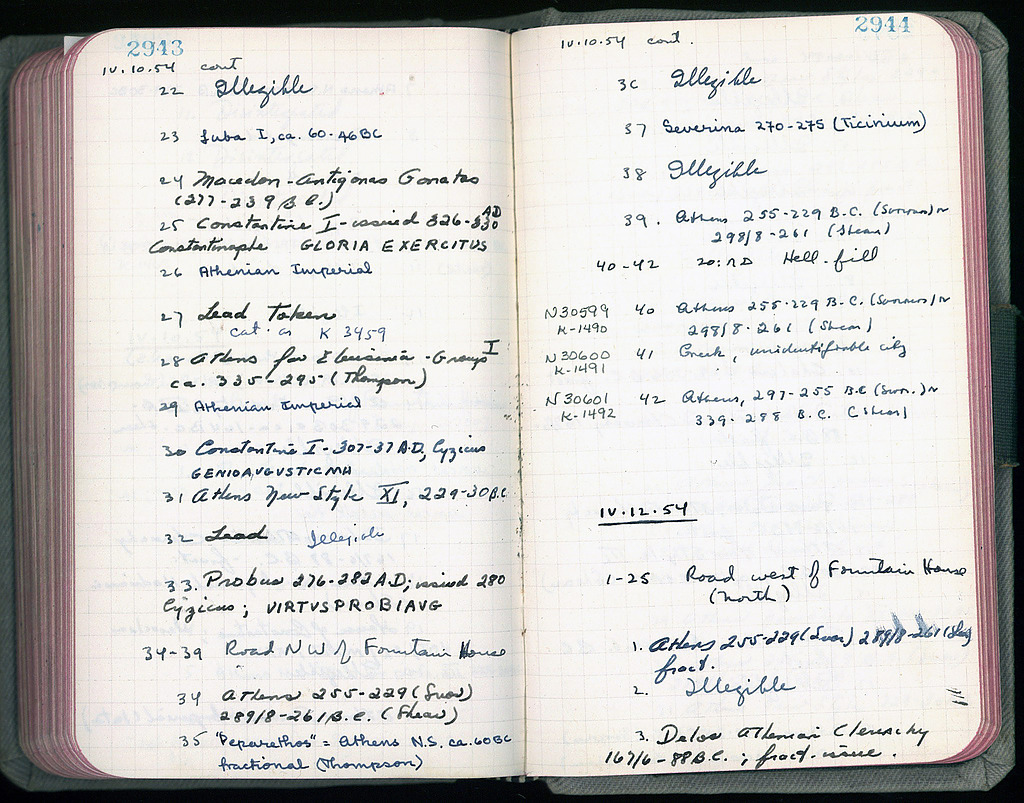 2943
IV.10.54 cont
22 Illegible
23 Juba I, ca. 60-46 BC
24 Macedon - Antigonas Gonatas
(277-239 B.C.)
25 Constantine I - issued 326-330 AD
Constantinople GLORIA EXERCITUS
26 Athenian Imperial
27 Lead Token
cat. as K 3459
28 Athens for Eleusinia - Group I
ca. 335-295 (Thompson)
29 Athenian Imperial
30 Constantine I - 307-37 A.D, Cyzicus
GENIOAVGVSTICMH
31 Athens New Style XI, 229-30 B.C.
32 Lead Illegible
33. Probus 276-282 A.D; issued 280
Cyzicus; VIRTVSPROBIAVG
34-39 Road NW of Fountain House
34 Athens 255-229 (Svor)
289/8-261 B.C. (Shear)
35 "Peparethos" = Athens N.S. ca. 60 BC
fractional (Thompson)
2944
IV.10.54 cont.
36 Illegible
37 Severina 270-275 (Ticinium)
38 Illegible
39. Athens 255-229 B.C. (Svoronos) or
298/8-261 (Shear)
40-42 Hell. fill
N30599 40 Athens 255-229 B.C. (Svoronos) or
K-1490 298/8-261 (Shear)
N30600 41 Greek, unidentifiable city
K-1491
N30601 42 Athens, 297-255 B.C (Svor.) or
K-1492 339-288 B.C. (Shear)
IV.12.54
1-25 Road west of Fountain House
(North)
1. Athens 255-229 (Svor) 289/8-261
fract.
2. Illegible
3. Delos Athenian Cleruchy
167/6-88 B.C.; fract. issue.